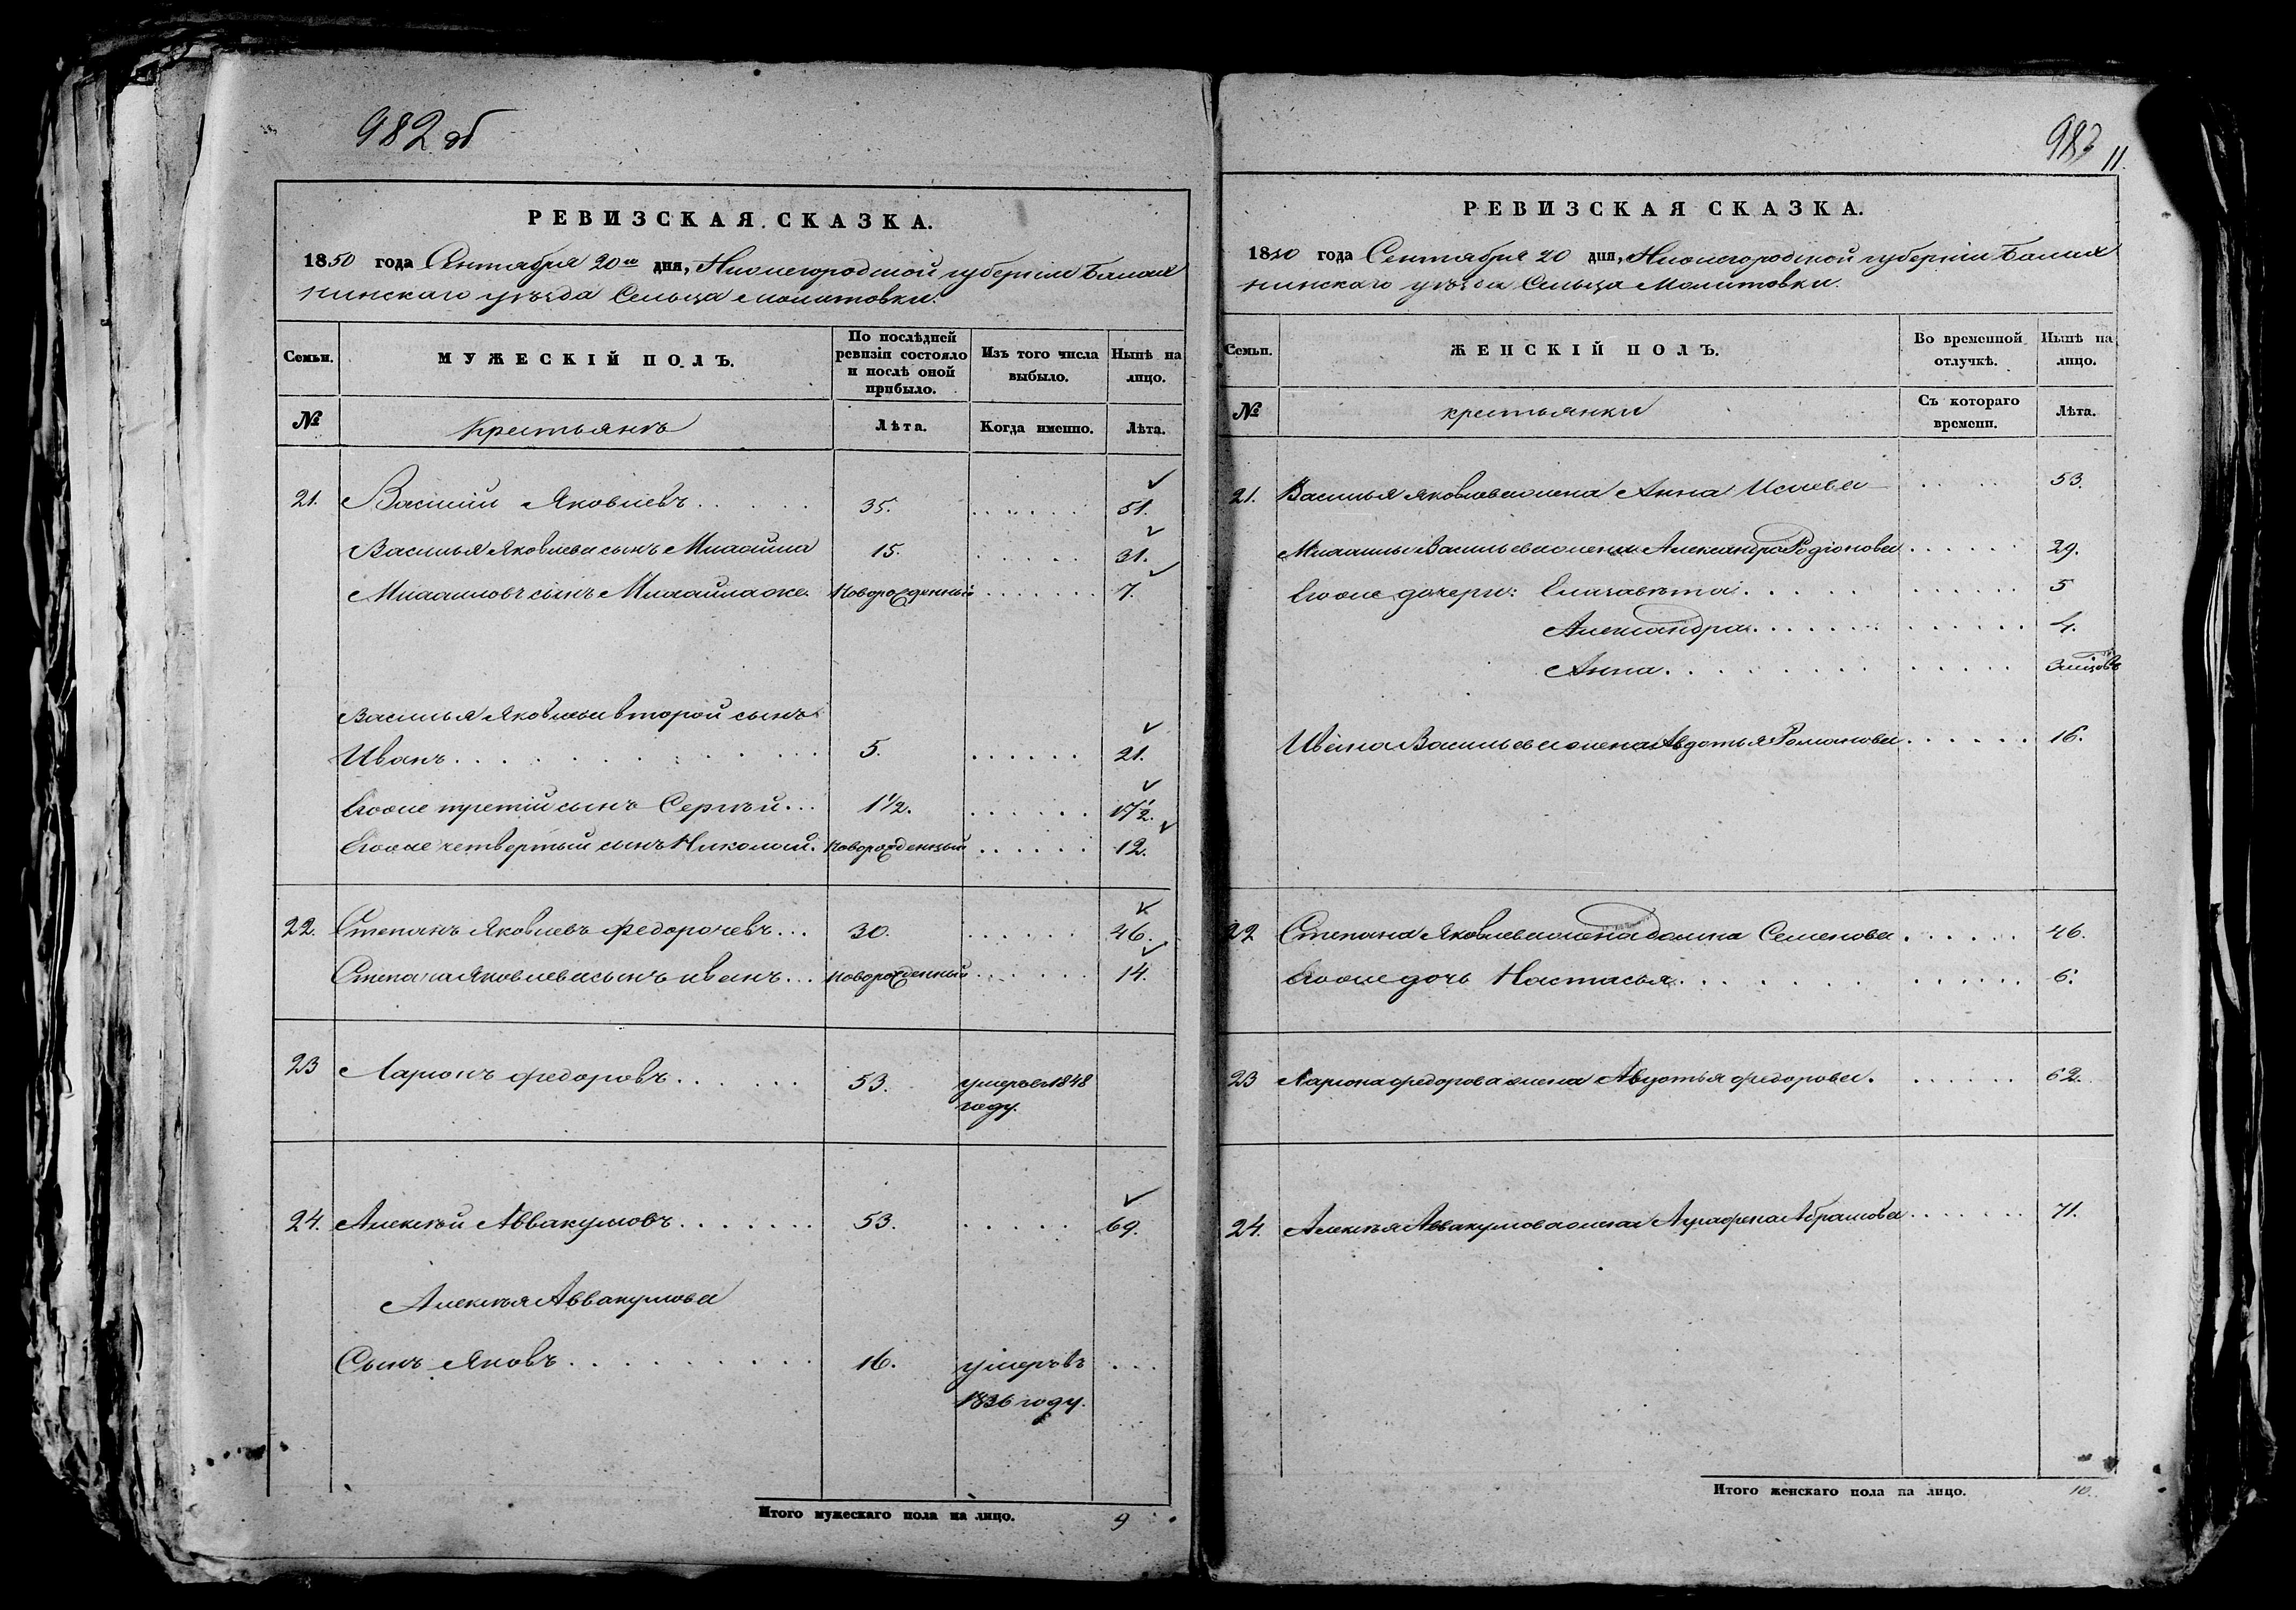 982 об
РЕВИЗСКАЯ СКАЗКА.
1850 года Сентября 20го дня, Нижегородской губернiи Балах
нинскаго уѣзда Сельца Молитовки.
Семьи. МУЖЕСКIЙ ПОЛЪ. По послѣдней ревизiи состояло и послѣ оной прибыло. Изъ того числа выбыло. Нынѣ на лицо.
№ Крестьянъ Лѣта. Когда именно. Лѣта.
21. Василiй Яковлевъ 35. 51.
Василья Яковлева сынъ Михайла 15. 31.
Михайловъ сынъ Михайла же. Новорожденный 7.
Василья Яковлева второй сынъ
Иванъ 5. 21.
Егоже третiй сынъ Сергѣй 1 1/2. 17 1/2.
Егоже четвертый сынъ Николай. Новорожденный 12.
22. Степанъ Яковлевъ Федорочевъ 30. 46.
Степана Яковлева сынъ Иванъ Новорожденный 14.
23 Ларiонъ Федоровъ 53. умеръ въ 1848
году.
24. Алексѣй Аввакумовъ 53. 69.
Алексѣя Аввакумова
Сынъ Яковъ 16. умеръ въ
1836 году.
Итого мужескаго пола на лицо. 9
983
11.
РЕВИЗСКАЯ СКАЗКА.
1850 года Сентября 20 дня, Нижегородской губернiи Балах
нинскаго уѣзда Сельца Молитовки.
Семьи. ЖЕНСКIЙ ПОЛЪ. Во временной отлучкѣ. Нынѣ на лицо.
№ крестьянки Съ котораго времени. Лѣта.
21. Василья Яковлева жена Анна 53.
Михайлы Васильева жена Александра Родiонова 29.
Егоже дочери: Елизавѣта 5
Александра 4.
Анна 3 мѣсяцовъ
Ивана Васильева жена Авдотья Романова 16.
22 Степана Яковлева жена Домна Семенова 46.
Егоже дочь Настасья 6.
23 Ларiона Федорова жена Авдотья Федорова. 62.
24. Алексѣя Аввакумова жена Аграфена Абрамова 71.
Итого женскаго пола на лицо. 10.